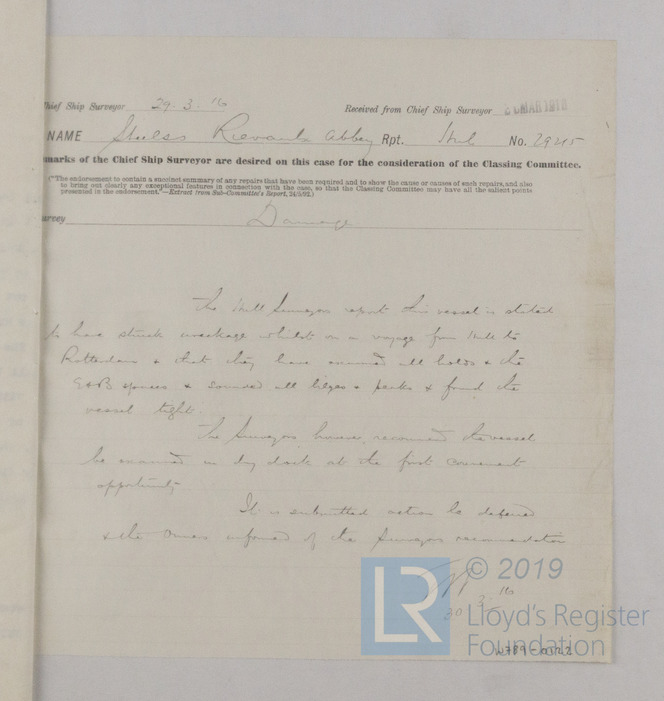 Chief Ship Surveyor 29.3.16 Received from Chief Ship Surveyor MAR 1916
NAME Rievaulx Abbey Rpt. Hul No. 29215
marks of the Chief Ship Surveyor are desired on this case for the consideration of the Classing Committee.
("The endorsement to contain a succinct summary of any repairs that have been required and to show the cause or causes of such repairs, and also
to bring out clearly any exceptional features in connection with the case, so that the Classing Committee may have all the salient points
presented in the endorsement."—Extract from Sub-Committee's Report, 24/5/92.)
urvey Damage
The Hull Surveyors report this vessel is stated
to have struck wreckage whilst on a voyage from Hull to
Rotterdam & that they have examined all holds & the
E&B spaces & sounded all bilges & peaks & found the
vessel tight.
The Surveyors, however, recommend the vessel
be examined in dry dock at the first convenient
opportunity
It is submitted action be deferred
& the Owners informed of the Surveyors recommendation
30.3.16
© 2019
LR
Lloyd's Register
Foundation
W789-0122